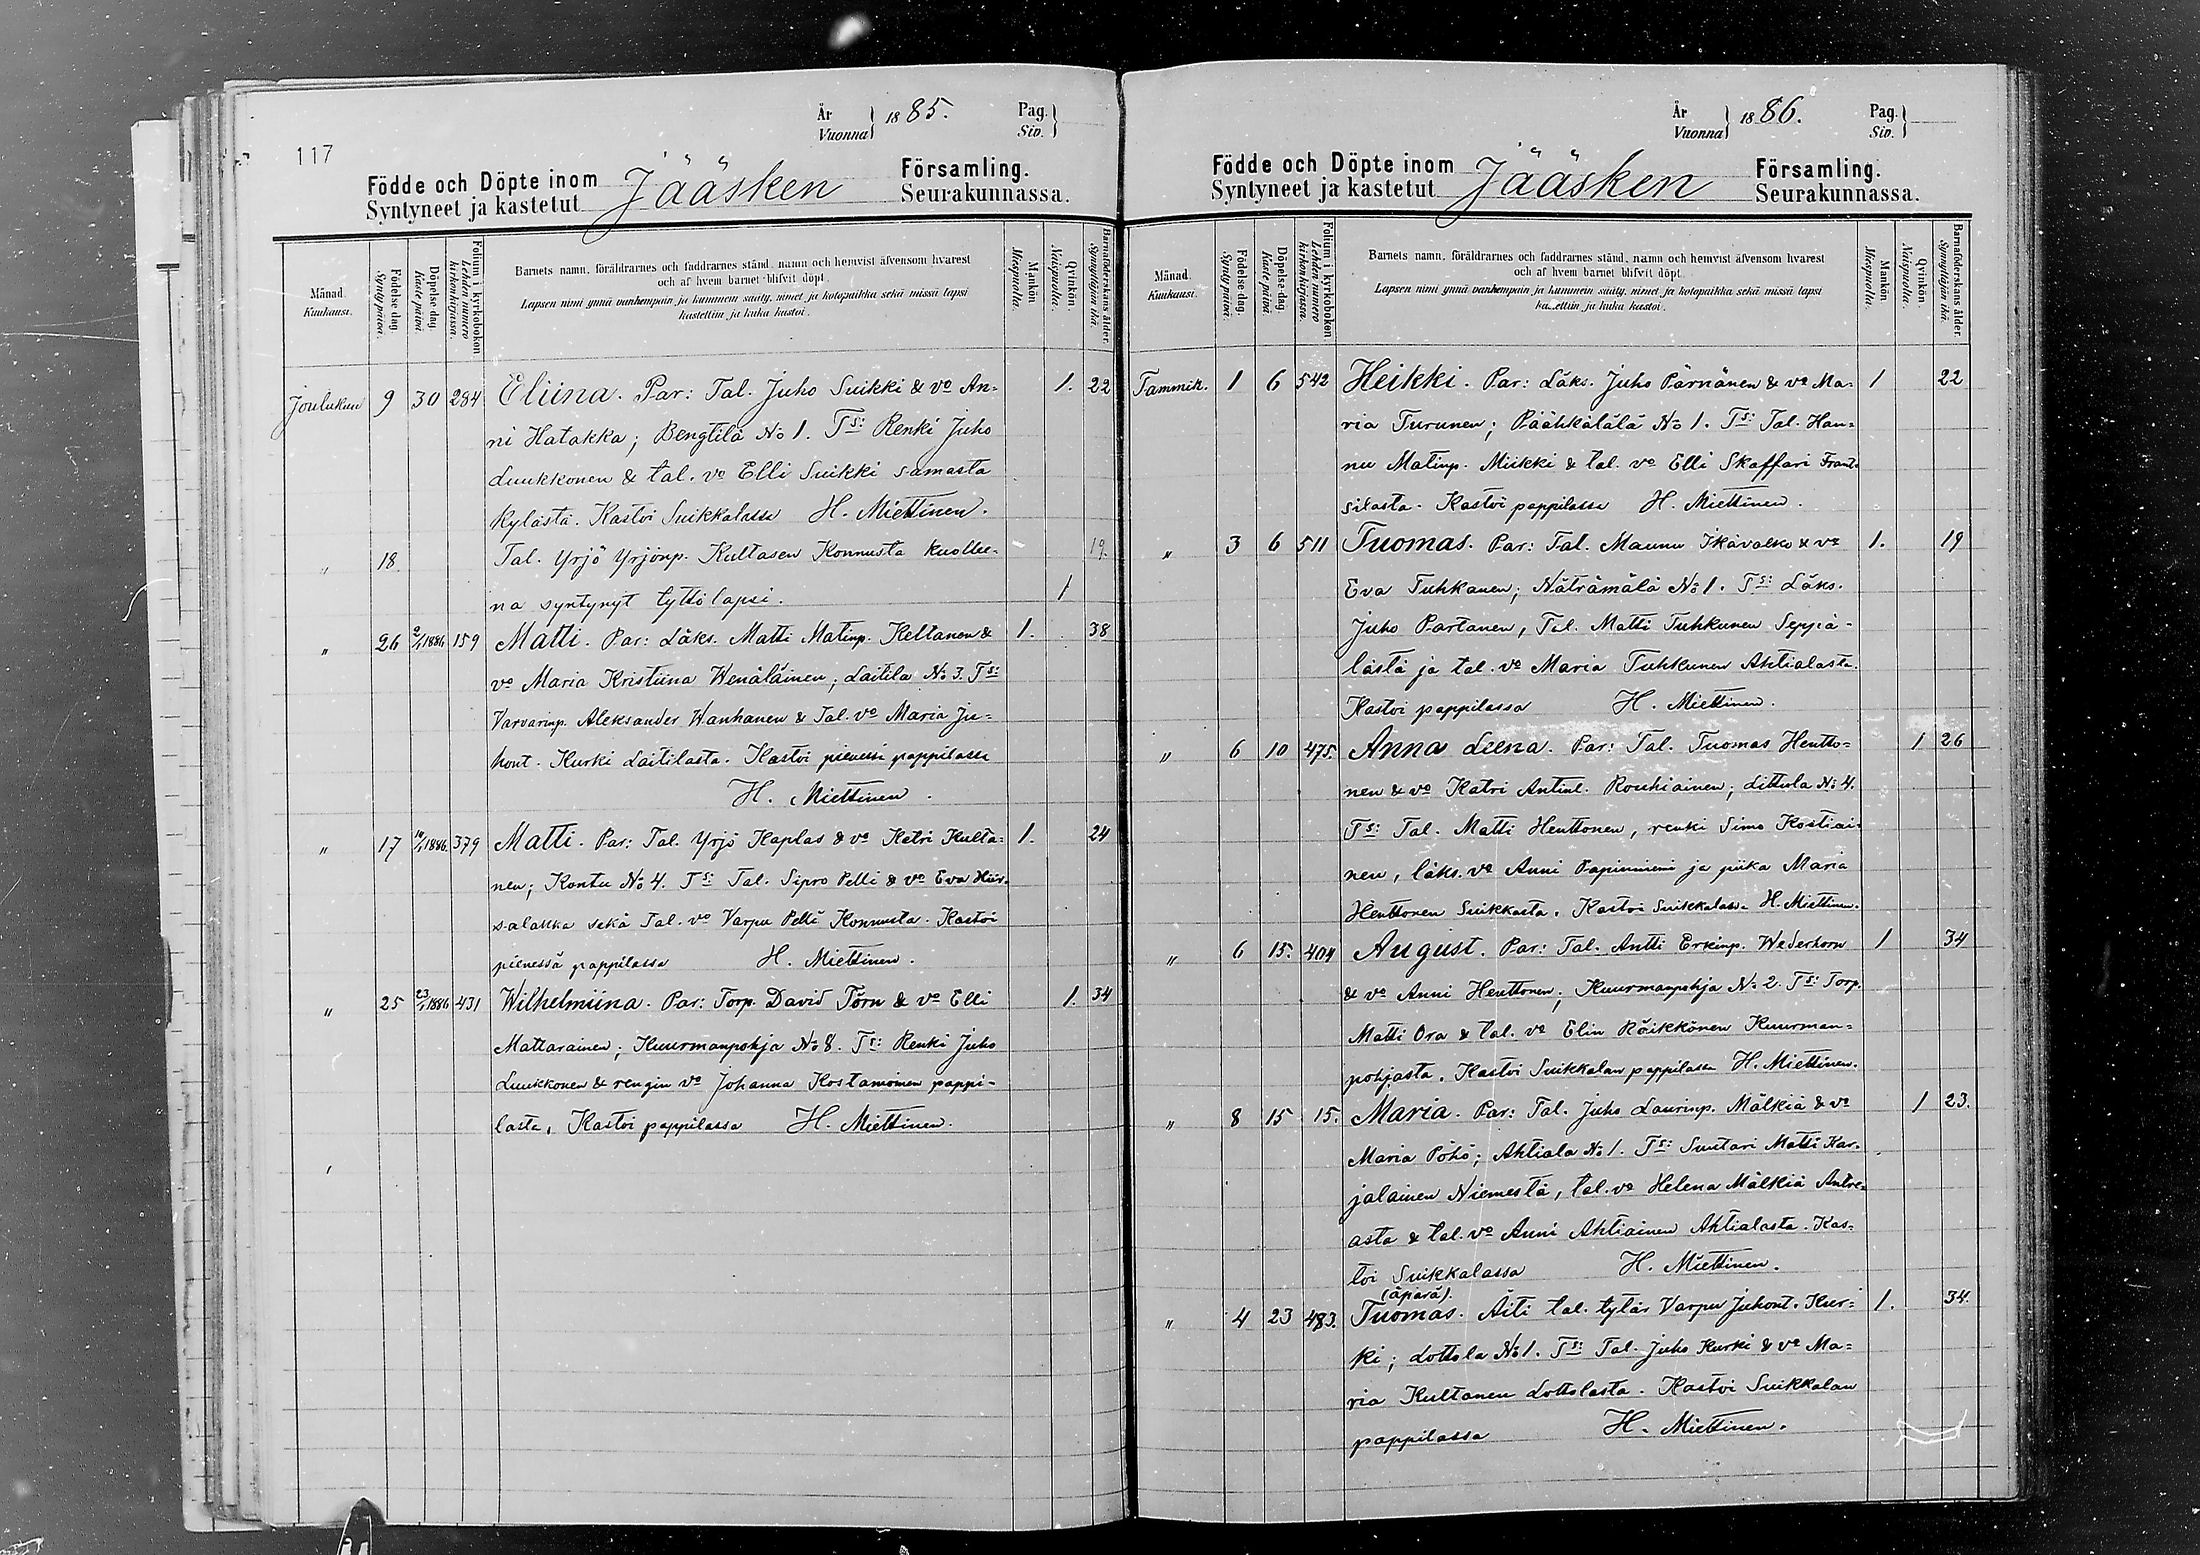 117
År
Vuonna } 1885. Pag.
Siv. }
Födde och Döpte inom Jääsken Församling.
Syntyneet ja kastetut Seurakunnassa.
Månad.
Kuukausi.
Födelse-dag.
Synty-päivä.
Döpelse-dag.
Kaste-päivä.
Folium i kyrkoboken
Lehden numero
kirkonkirjassa.
Barnets namn, föräldrarnes och faddrarnes stånd, namn och hemvist äfvensom hvarest
och af hvem barnet blifvit döpt.
Lapsen nimi ynnä vanhempain ja kummein sääty, nimet ja kotopaikka sekä missä lapsi
kastettiin ja kuka kastoi.
Mankön.
Miespuolta.
Qvinkön.
Naispuolta.
Barnaföderskans ålder.
Synnyttäjän ikä.
Joulukuu 9 30 284 Eliina. Par: Tal. Juho Suikki & vo An= 1. 22
ni Hatakka; Bengtilä No 1. Ts: Renki Juho
Luukkonen & tal. vo Elli Suikki samasta
kylästä. Kastoi Suikkalassa H. Miettinen.
" 18. Tal. Yrjö Yrjönp. Kultasen Konnusta kuollee- 19.
na syntynyt tyttölapsi. 1
" 26 9/1 1886 159 Matti. Par: Läks. Matti Matinp. Keltanen & 1. 38
vo Maria Kristiina Wenäläinen; Laitila No 3. Ts:
Varvarinp. Aleksander Wanhanen & Tal. vo Maria Ju=
hont. Kurki Laitilasta. Kastoi pienessä pappilassa
H. Miettinen.
" 17 10/1 1886. 379 Matti. Par: Tal. Yrjö Kaplas & vo Katri Kulta= 1. 24
nen; Kontu No 4. Ts: Tal. Sipro Pelli & vo Eva Hiir=
salakka sekä Tal. vo Varpu Pelli Konnusta. Kastoi
pienessä pappilassa H. Miettinen.
" 25 23/1 1886 431 Wilhelmiina. Par: Torp. David Törn & vo Elli 1. 34
Mattarainen; Kuurmanpohja No 8. Ts: Renki Juho
Luukkonen & rengin vo Johanna Kostamoinen pappi=
lasta. Kastoi pappilassa H. Miettinen.
År
Vuonna } 1886. Pag.
Siv. }
Födde och Döpte inom Jääsken Församling.
Syntyneet ja kastetut Seurakunnassa.
Månad.
Kuukausi.
Födelse-dag.
Synty-päivä.
Döpelse-dag.
Kaste-päivä.
Folium i kyrkoboken
Lehden numero
kirkonkirjassa.
Barnets namn, föräldrarnes och faddrarnes stånd, namn och hemvist äfvensom hvarest
och af hvem barnet blifvit döpt.
Lapsen nimi ynnä vanhempain ja kummein sääty, nimet ja kotopaikka sekä missä lapsi
kastettiin ja kuka kastoi.
Mankön.
Miespuolta.
Qvinkön.
Naispuolta.
Barnaföderskans ålder.
Synnyttäjän ikä.
Tammik. 1 6 542 Heikki. Par: Läks. Juho Pärnänen & vo Ma= 1 22
ria Turunen; Päähkälälä No 1. Ts: Tal. Han=
nu Matinp. Miikki & tal. vo Elli Skaffari Frant=
silasta. Kastoi pappilassa H. Miettinen.
" 3 6 511 Tuomas. Par: Tal. Maunu Ikävalko & vo 1. 19
Eva Tuhkanen; Näträmälä No 1. Ts: Läks.
Juho Partanen, Tal. Matti Tuhkunen Seppä-
lästä ja tal. vo Maria Tuhkunen Ahtialasta.
Kastoi pappilassa H. Miettinen.
" 6 10 475. Anna Leena. Par: Tal. Tuomas Hentto= 1 26
nen & vo Katri Antint. Rouhiainen; Littola No 4.
Ts: Tal. Matti Henttonen, renki Simo Kostiai=
nen, läks. vo Anni Papinniemi ja piika Maria
Henttonen Suikkasta. Kastoi Suikkalassa H. Miettinen.
" 6 15. 404 August. Par: Tal. Antti Erkinp. Wederhorn 1 34
& vo Anni Henttonen; Kuurmanpohja No 2. Ts: Torp.
Matti Ora & tal. vo Elin Räikkönen Kuurman=
pohjasta. Kastoi Suikkalan pappilassa H. Miettinen.
" 8 15 15. Maria. Par: Tal. Juho Laurinp. Mälkiä & vo 1 23.
Maria Pöhö; Ahtiala No 1. Ts: Suutari Matti Kar=
jalainen Niemestä, tal. vo Helena Mälkiä Antre=
asta & tal. vo Anni Ahtiainen Ahtialasta. Kas=
toi Suikkalassa H. Miettinen.
(äpärä).
" 4 23 483. Tuomas. Äiti tal. tytär Varpu Juhont. Kur= 1. 34
ki; Lottola No 1. Ts: Tal. Juho Kurki & vo Ma=
ria Kultanen Lottolasta. Kastoi Suikkalan
pappilassa H. Miettinen.